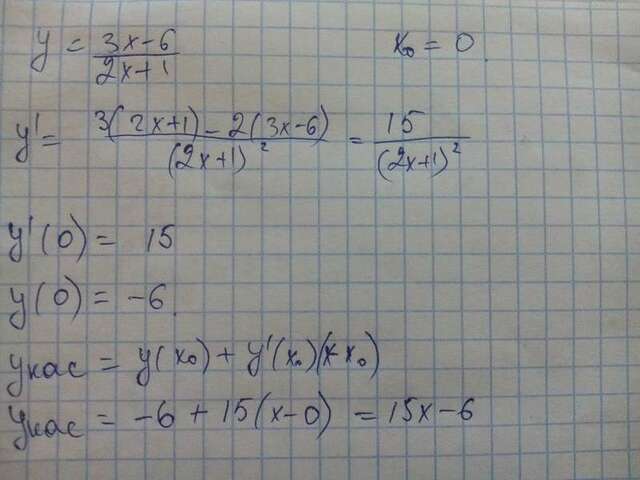 y = (3x-6)/(2x+1) x₀ = 0
y' = (3(2x+1) - 2(3x-6))/(2x+1)² = 15/(2x+1)²
y'(0) = 15
y(0) = -6
yкас = y(x₀) + y'(x₀)(x-x₀)
yкас = -6 + 15(x-0) = 15x-6